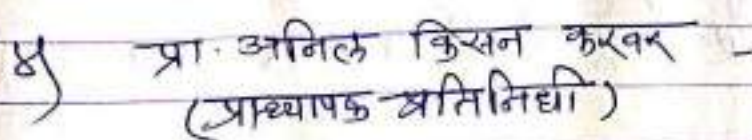 ४) प्रा. अनिल किसन करवर -
(प्राध्यापक प्रतिनिधी)